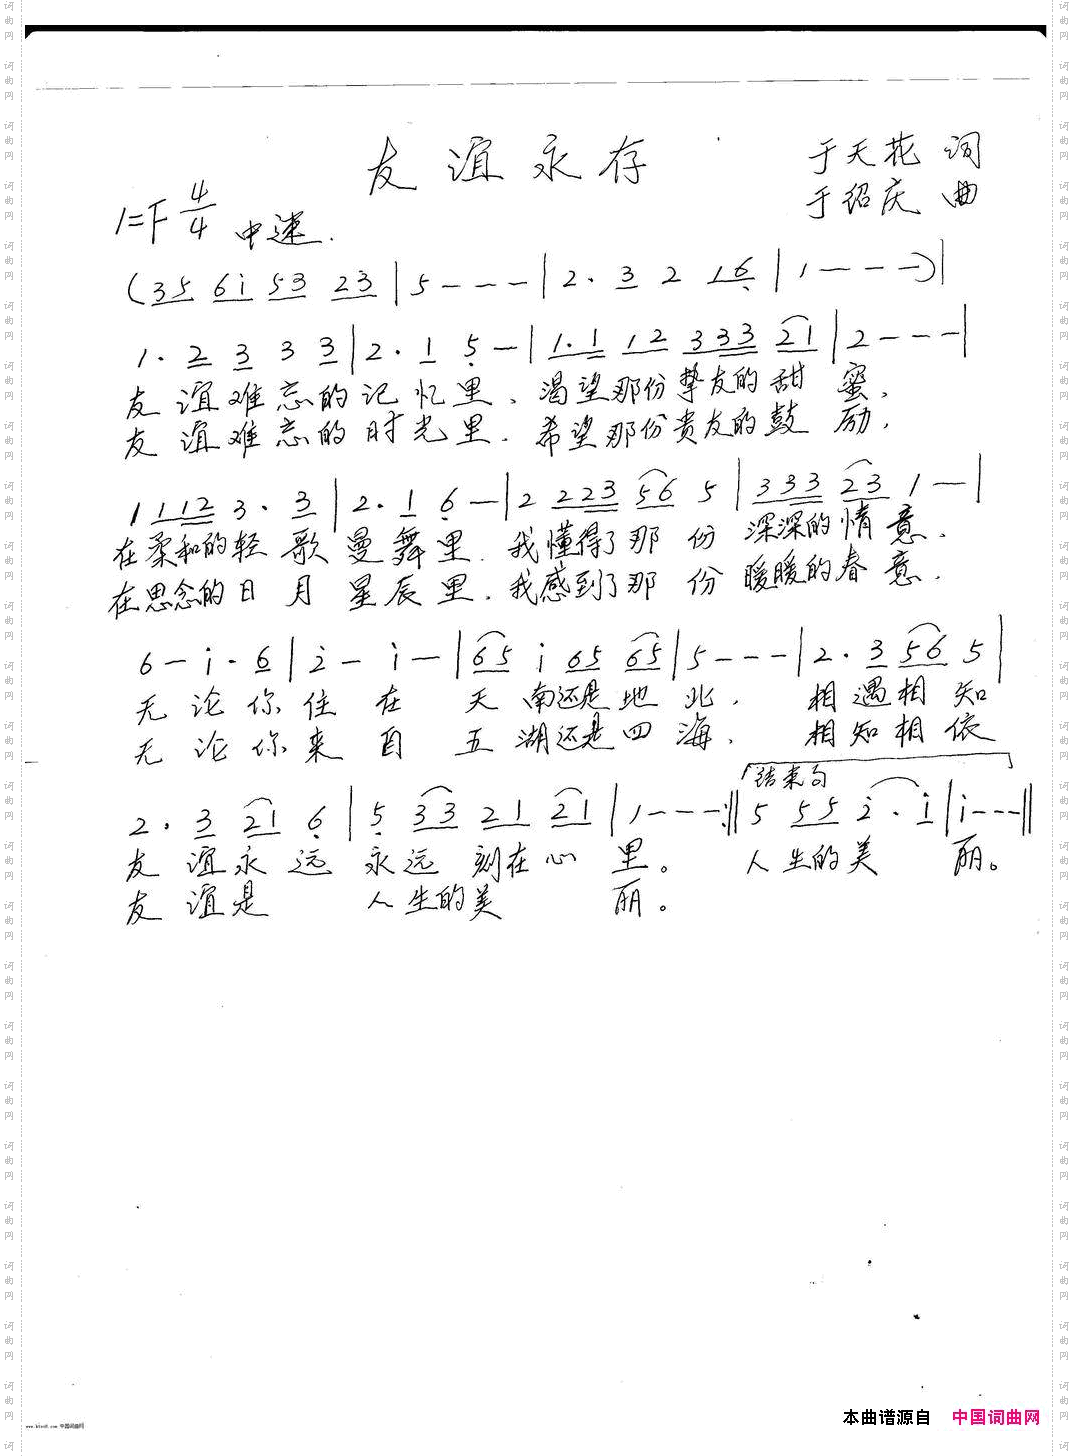 友谊永存
于天花 词
于绍庆 曲
1=F 4/4 中速.
(35 6i 53 23 | 5 - - - | 2. 3 2 16 | 1 - - - ) |
1. 2 3 3 3 | 2. 1 5 - | 1.1 12 333 21 | 2 - - - |
友谊难忘的记忆里、渴望那份挚友的甜蜜,
友谊难忘的时光里.希望那份贵友的鼓励,
1 112 3. 3 | 2. 1 6 - | 2 223 56 5 | 333 23 1 - |
在柔和的轻歌曼舞里.我懂得了那份深深的情意.
在思念的日月星辰里.我感到了那份暖暖的春意.
6 - i. 6 | 2 - i - | 65 i 65 65 | 5 - - - | 2. 3 56 5 |
无论你住在天南还是地北.相遇相知
无论你来自五湖还是四海.相知相依
结束句
2. 3 21 6 | 5 33 21 21 | 1 - - - :‖ 5 55 2. i | i - - - ‖
友谊永远永远刻在心里。人生的美丽。
友谊是人生的美丽。
本曲谱源自 中国词曲网
词曲网